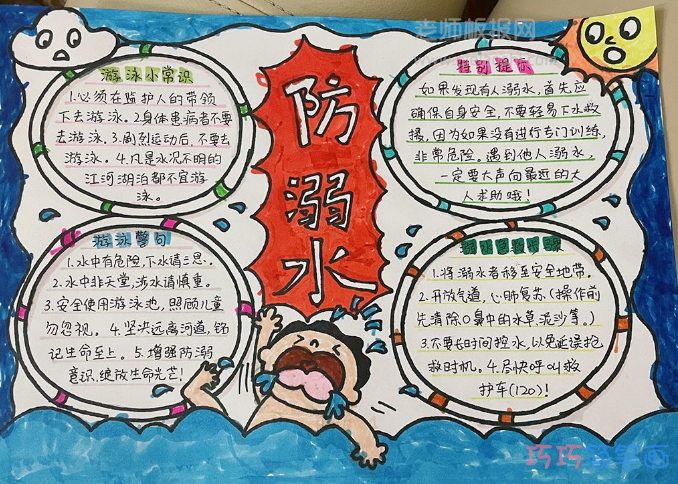 老师板报网
防溺水
游泳小常识
1.必须在监护人的带领
下去游泳。2.身体患病者不要
去游泳。3.剧烈运动后,不要去
游泳。4.凡是水况不明的
江河湖泊都不宜游
泳。
特别提示
如果发现有人溺水,首先应
确保自身安全,不要轻易下水救
援,因为如果没有进行专门训练,
非常危险。遇到他人溺水,
一定要大声向最近的大
人求助哦!
游泳警句
1.水中有危险,下水请三思。
2.水中非天堂,涉水请慎重。
3.安全使用游泳池,照顾儿童
勿忽视。4.坚决远离河道,铭
记生命至上。5.增强防溺
意识,绽放生命光芒!
1.将溺水者移至安全地带。
2.开放气道,心肺复苏(操作前
先清除口鼻中的水草,泥沙等。)
3.不要长时间控水,以免延误抢
救时机。4.尽快呼叫救
护车(120)!
巧巧简笔画